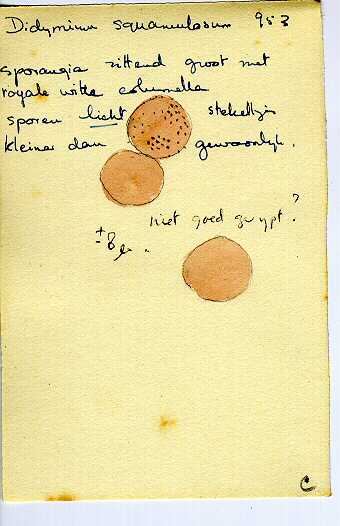 Didymium squamulosum 953
sporangia zittend groot met
royale witte columella
sporen licht stekelig
kleiner dan gewoonlijk.
niet goed gerypt?
± 8 µ.
C